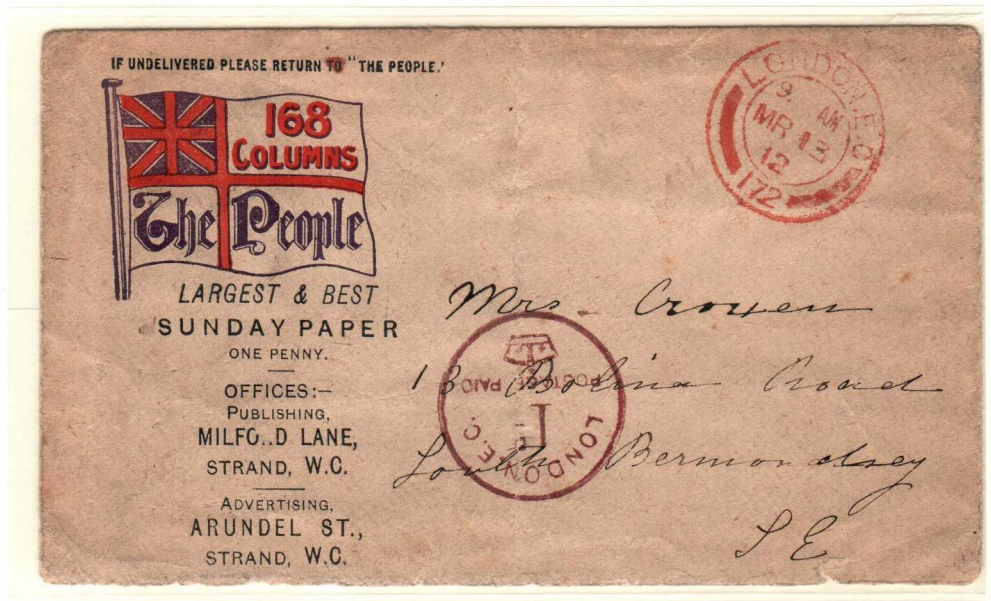 IF UNDELIVERED PLEASE RETURN TO "THE PEOPLE."
168
COLUMNS
The People
LARGEST & BEST
SUNDAY PAPER
ONE PENNY.
OFFICES:-
PUBLISHING,
MILFO..D LANE,
STRAND, W.C.
ADVERTISING,
ARUNDEL ST.,
STRAND, W.C.
LONDON.E.C.
9 AM
MR 13
12
172
Mrs. Croxen
13 Bolina Road
South Bermondsey
S E
POSTAGE PAID
1
LONDON.E.C.